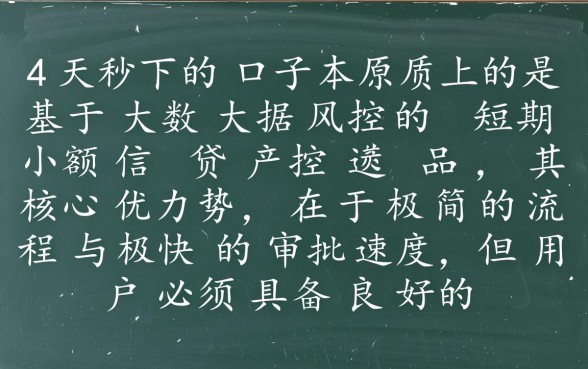 4 天秒下的 口子本原质上的是
基于 大数 大据 风控的 短期
小额 信 贷 产控 递 品 ， 其
核心 优力势， 在于极简的流
程 与极快 的 审批 速度，但 用
户 必须 具备 良 好的